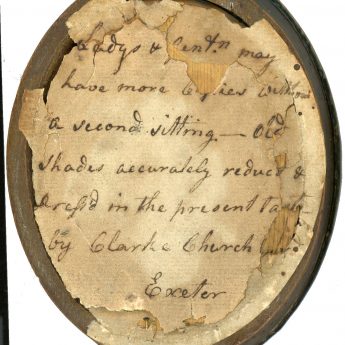 Ladys & Gentn may
have more Copies without
a second sitting — Old
Shades accurately reduced &
Dress'd in the present taste
by Clarke Church
Exeter